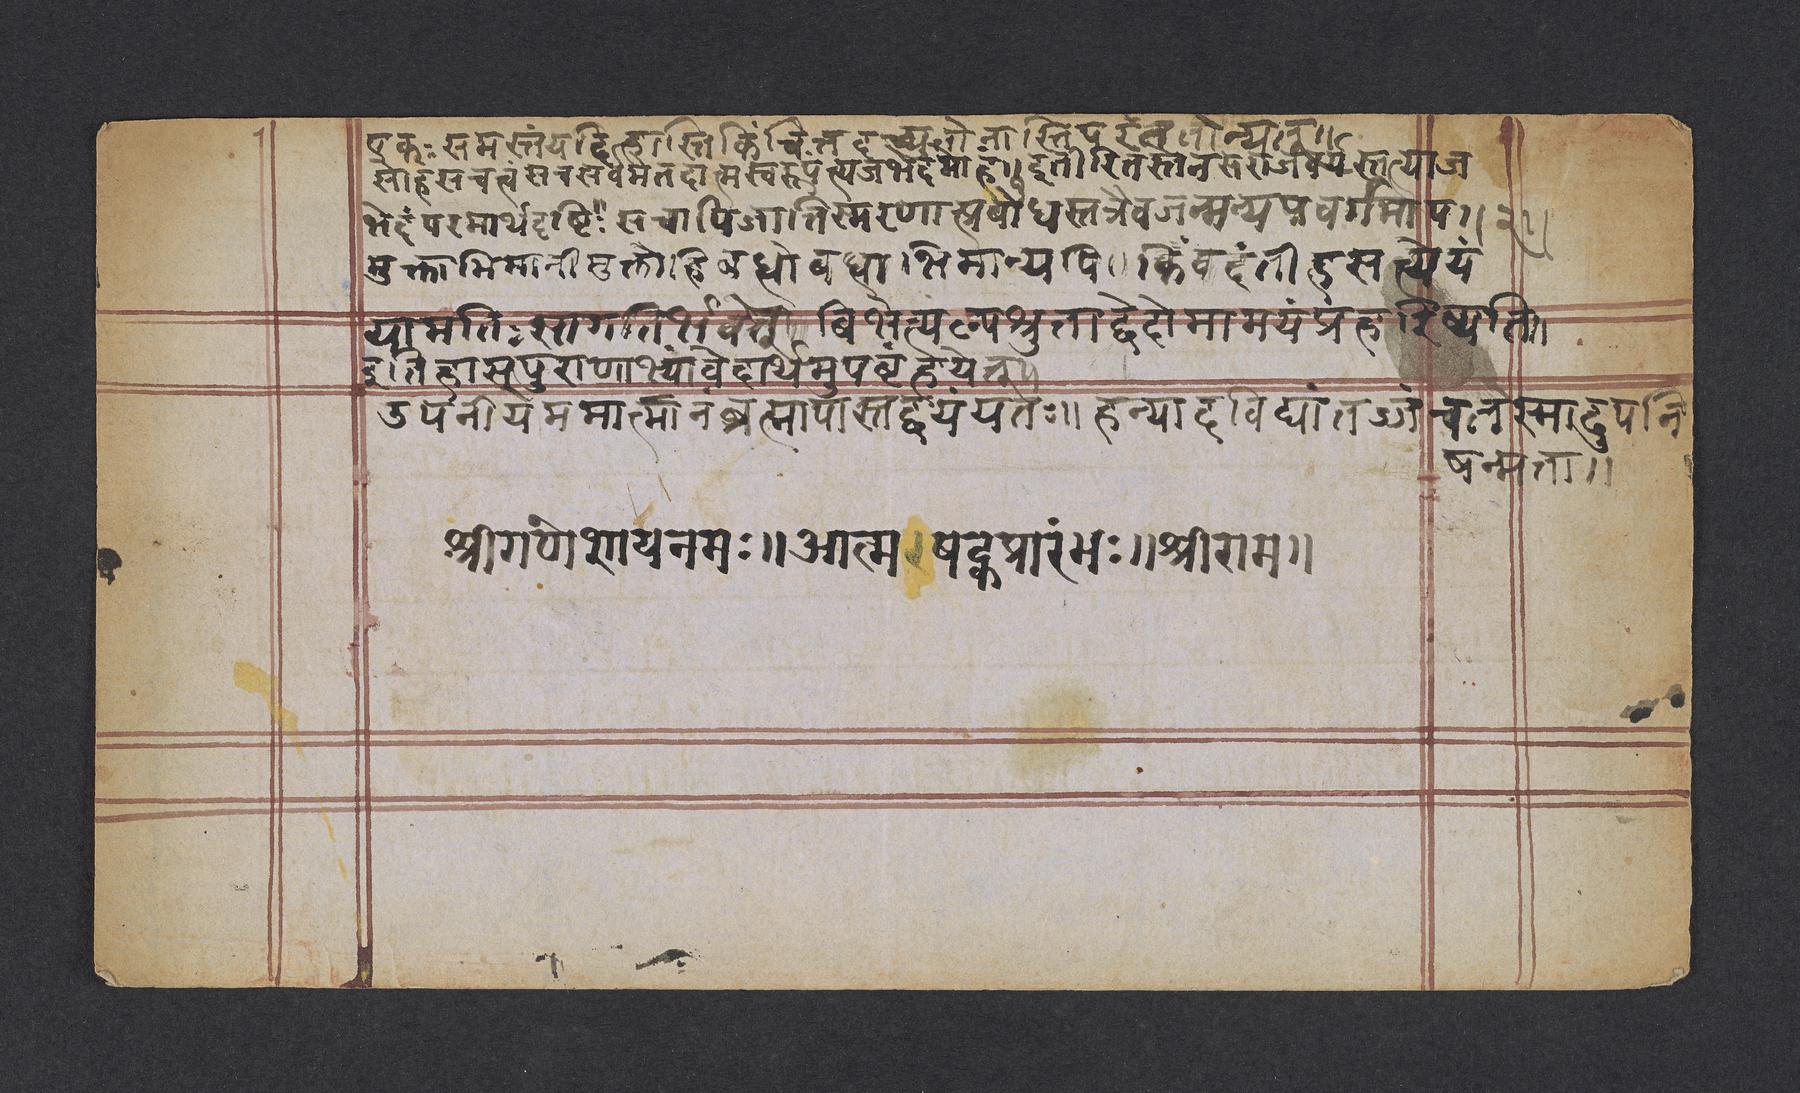 एकः समस्तंयदिहास्तिकिंचित्तदच्युतोनास्तिपरंततोन्यत्॥
सोहंसचत्वंसचसर्वमेतदात्मस्वरूपंत्यजभेदमोहं॥इतीरितस्तेनसराजवर्यस्तत्याज
भेदंपरमार्थदृष्टिः॥सचापिजातिस्मरणाप्तबोधस्तत्रैवजन्मन्यपवर्गमाप॥२॥
मुक्ताभिमानीमुक्तोहिबधोबधाभिमान्यपि॥किंवदंतीहसत्येयं
यामतिःसागतिर्भवेत्॥बिभेत्यल्पश्रुताद्वेदोमामयंप्रहरिष्यति॥
इतिहासपुराणाभ्यांवेदार्थमुपबृंहयेत्॥
उपनीयममात्मानंब्रह्मापास्तद्वयंयतः॥हन्यादविद्यांतज्जंचतस्मादुपनि
षन्मता॥
श्रीगणेशायनमः॥आत्मषट्कप्रारंभः॥श्रीराम॥